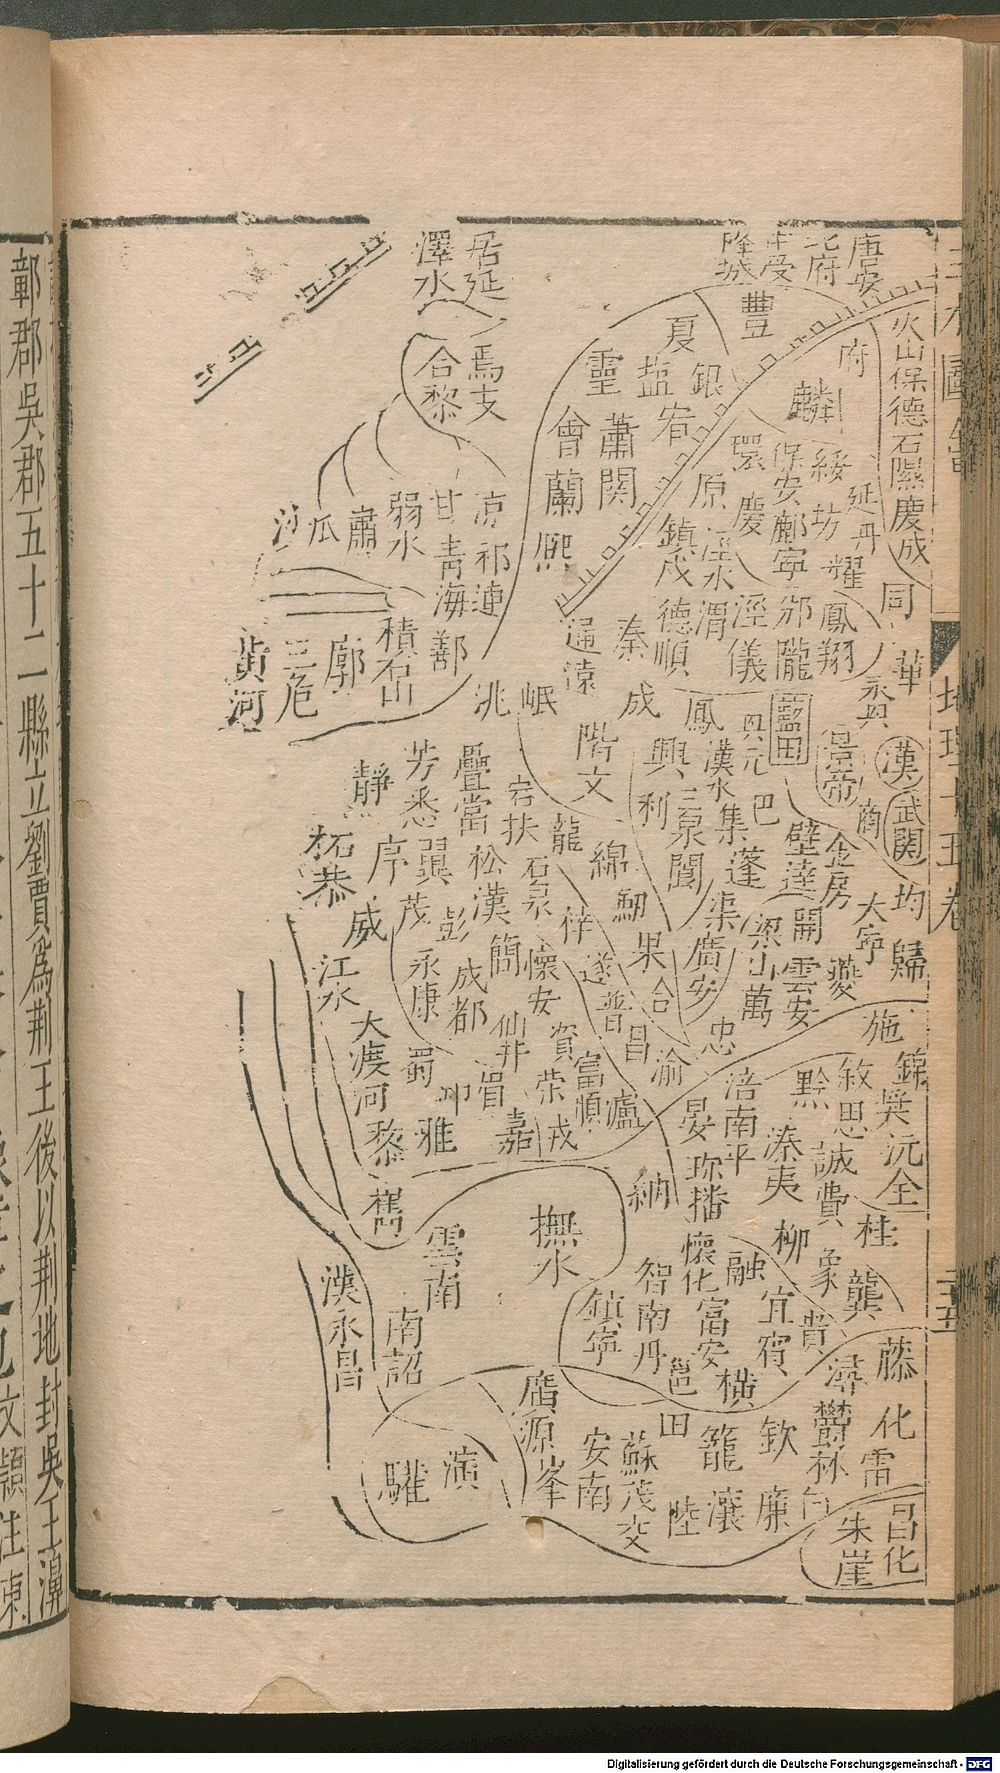 地理十五卷
唐安
北府
受
隆城
豐
火山保德石隰慶成
府
麟
夏
銀
盐
宥
靈
會
蘭
熙
蕭関
居延
澤水
焉支
合黎
綏
延丹
保安鄜寧
坊
耀
環
慶
原
鎮戎
德順
渭
涇
儀
邠
隴
鳳翔
同
華
凉
祁連
甘
青海
鄯
弱水
肅
瓜
沙
積石山
廓
三危
黃河
洮
岷
通遠
秦
成
階
文
鳳
興
利
興元
漢水
集
巴
藍田
景帝
漢
武関
商
金
房
均
歸
大寧
夔
壁
達
開
雲安
梁山
萬
蓬
渠
廣安
三泉
閬
龍
綿
劒
果
合
岩
扶
石泉
梓
遂
普
昌
渝
忠
疊
當
松
漢
簡
懷安
芳
悉
翼
茂
彭
永康
成都
仙井
資
富順
瀘
靜
序
威
柘
恭
江水
大渡河
蜀
邛
眉
榮
嘉
戎
黎
雅
雟
施
黔
敘
思
錦
奬
沅
全
涪
南平
溱
夷
誠
費
晏
珎
播
納
桂
柳
象
龔
懷化
融
宜
賓
貴
撫水
雲南
南詔
漢永昌
鎮寧
智
南丹
富安
邕
田
橫
潯
藤
化
雷
欽
籠
鬱林
廣源
峯
安南
蘇茂
交
陸
瀼
廉
白
昌化
朱崖
滇
驩
鄣郡吳郡五十二縣立劉賈爲荆王後以荆地封吳王濞
文潁注東
Digitalisierung gefördert durch die Deutsche Forschungsgemeinschaft - DFG